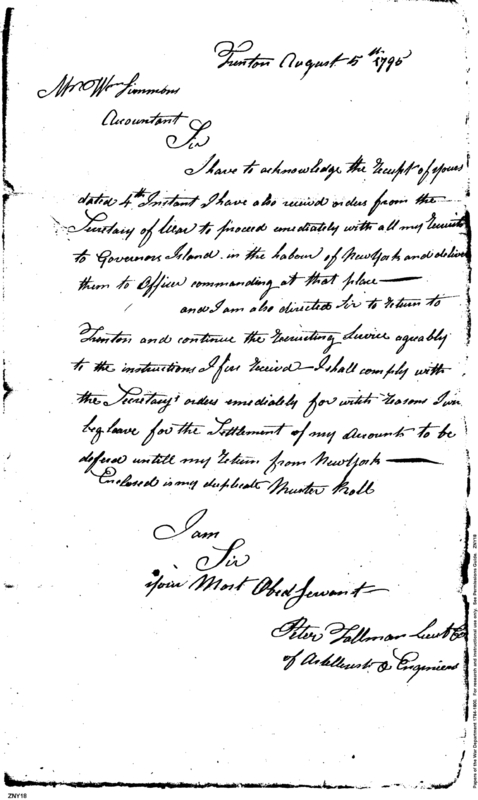 Trenton August 5th 1795
Mr Wm Simmons
Accountant
Sir
I have to acknowledge the Receipt of yours
dated 4th Instant I have also receivd orders from the
Secretary of War to proceed emediately with all my Recruits
to Governors Island in the habour of New York and deliver
them to Officer commanding at that place —
and I am also directed Sir to Return to
Trenton and continue the Recruiting Service agreably
to the instructions I firs Receivd — I shall comply with
the Secretary's orders emediately for witch Reasons I
beg leave for the Settlement of my Accounts to be
defered untill my Return from New York —
Enclosed is my duplicate Muster Roll
I am
Sir
your Most Obed Servant
Peter Tallman Lieut
of Artillerist & Engineers
ZNY18
Papers of the War Department 1784-1800. For research and instructional use only. See Permissions Guide. ZNY18